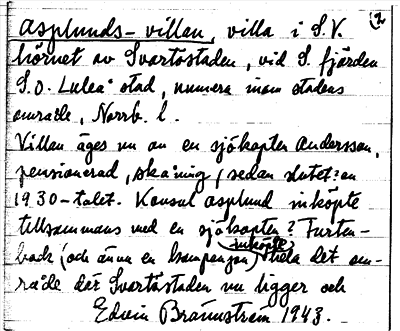 2
Asplunds-villan, villa i S.V.
hörnet av Svartöstaden, vid S. fjärden
S.O. Luleå stad, numera inom stadens
område, Norrb. l.
Villan äges nu av en sjökapten Andersson,
pensionerad, skåning, sedan slutet av
1930-talet. Konsul Asplund inköpte
tillsammans med en sjökapten? Furten-
back (och ännu en kompanjon) inköpte hela det om-
råde där Svartöstaden nu ligger och
Edvin Brännström 1943.